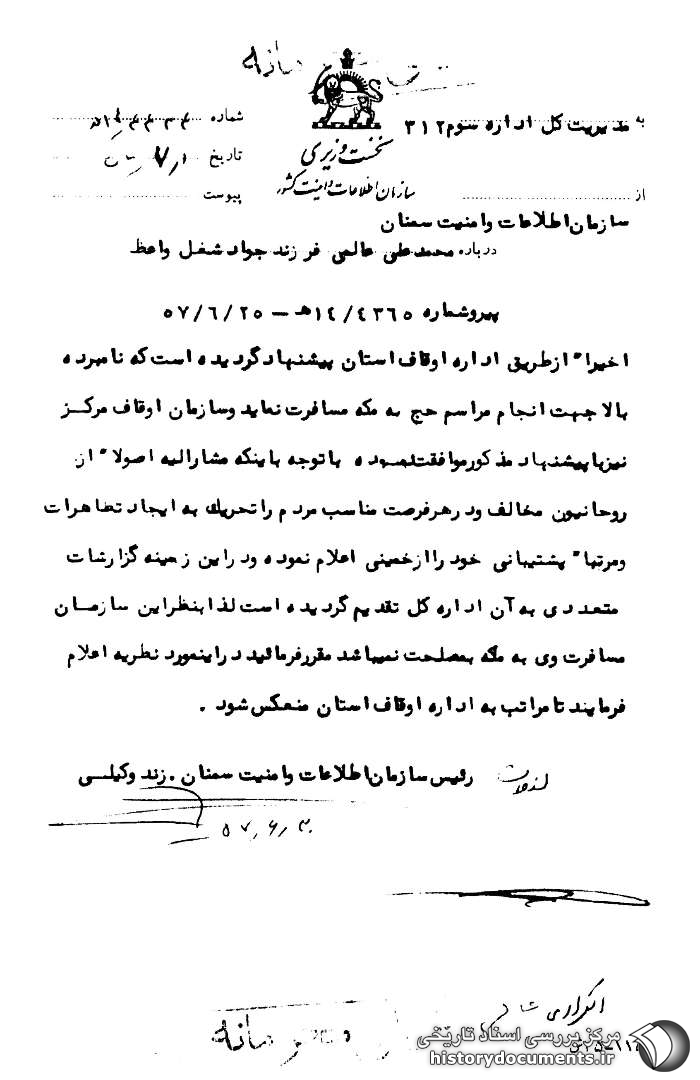 به مدیریت کل اداره سوم ۳۱۲
نخست وزیری
سازمان اطلاعات و امنیت کشور
شماره
تاریخ
پیوست
از
سازمان اطلاعات و امنیت سمنان
درباره محمدعلی عالمی فرزند جواد شغل واعظ
پیرو شماره ۱۴/۴۳۶۵ هـ – ۵۷/۶/۲۵
اخیرا" ازطریق اداره اوقاف استان پیشنهاد گردیده است که نامبرده
بالا جهت انجام مراسم حج به مکه مسافرت نماید و سازمان اوقاف مرکز
نیز با پیشنهاد مذکور موافقت نموده با توجه باینکه مشارالیه اصولا" از
روحانیون مخالف و در هر فرصت مناسب مردم را تحریک به ایجاد تظاهرات
و مرتبا" پشتیبانی خود را از خمینی اعلام نموده و در این زمینه گزارشات
متعددی به آن اداره کل تقدیم گردیده است لذا بنظر این سازمان
مسافرت وی به مکه بمصلحت نمیباشد مقرر فرمائید در اینمورد نظریه اعلام
فرمایند تا مراتب به اداره اوقاف استان منعکس شود .
رئیس سازمان اطلاعات و امنیت سمنان . زند وکیلی
۵۷/۶/۳۰
مرکز بررسی اسناد تاریخی
historydocuments.ir